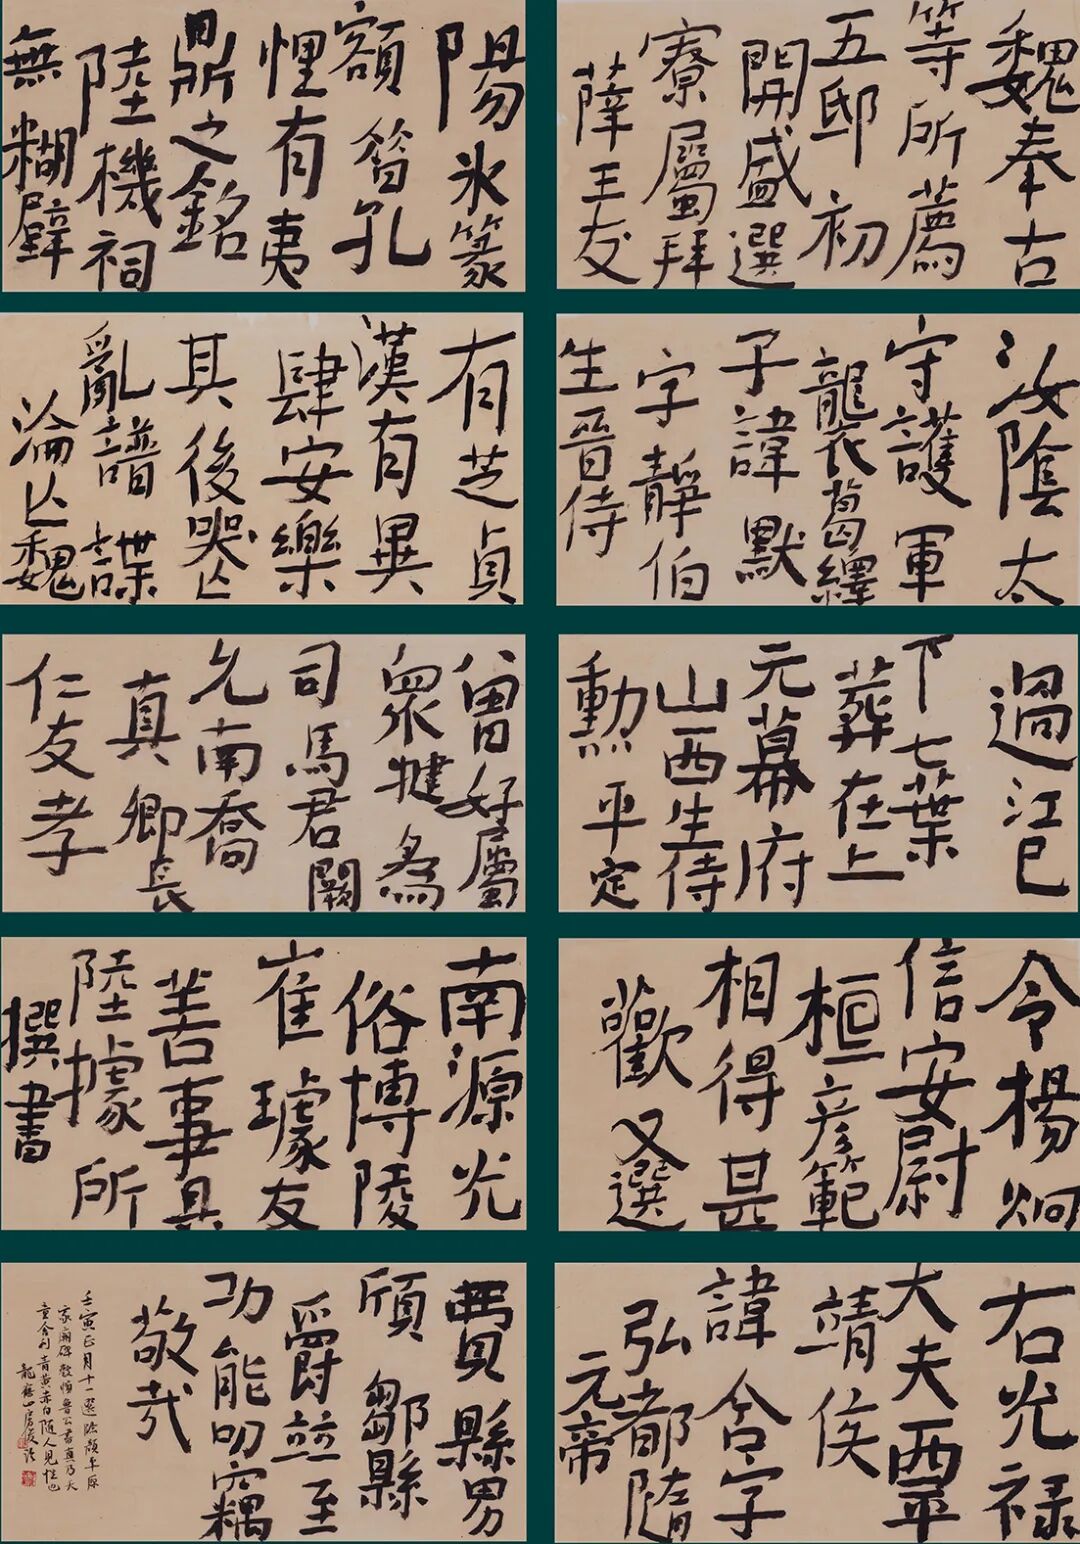 魏奉古
等所薦
五邸初
開盛選
寮屬拜
薛王友
陽冰篆
額籀孔
悝有夷
鼎之銘
陸機祠
無糊壁
汝陰太
守護軍
襲葛繹
子諱默
字靜伯
生晉侍
有芝貞
漢有異
肆安樂
其後哭亾
亂譜諜
淪亾魏
過江已
下七葉
葬在上
元幕府
山西生侍
勳平定
曾好屬
眾犍為
司馬君闕
允南喬
真卿長
仁友孝
令楊炯
信安尉
桓彥範
相得甚
歡又選
南源光
俗博陵
崔璩友
善事具
陸據所
撰書
右光祿
大夫西平
靖侯
諱含字
弘都隨
元帝
費縣男
頎鄒縣
爵並至
功能叨竊
敬哉
壬寅正月十一選臨顏平原
家廟碑魯公書真乃天
童舍利青黃赤白隨人見性也